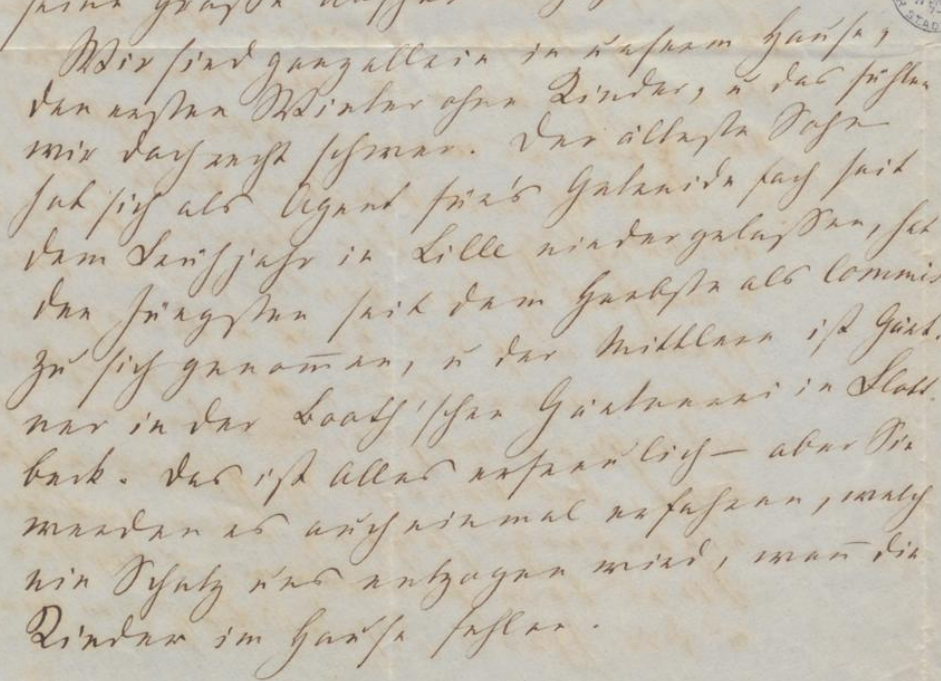 seine Grüße
Wir sind ganz allein in unserm Hause,
den ersten Winter ohne Kinder, u das fühlen
wir doch recht schwer. Der älteste Sohn
hat sich als Agent für's Getreidefach seit
dem Frühjahr in Lille niedergelassen, hat
den Jüngsten seit dem Herbste als Commis
zu sich genom̅en, u der Mittlere ist Gärt-
ner in der Booth'schen Gärtnerei in Flott-
beck. Das ist Alles erfreulich – aber Sie
werden es auch einmal erfahren, welch
ein Schatz uns entzogen wird, wen̅ die
Kinder im Hause fehlen.